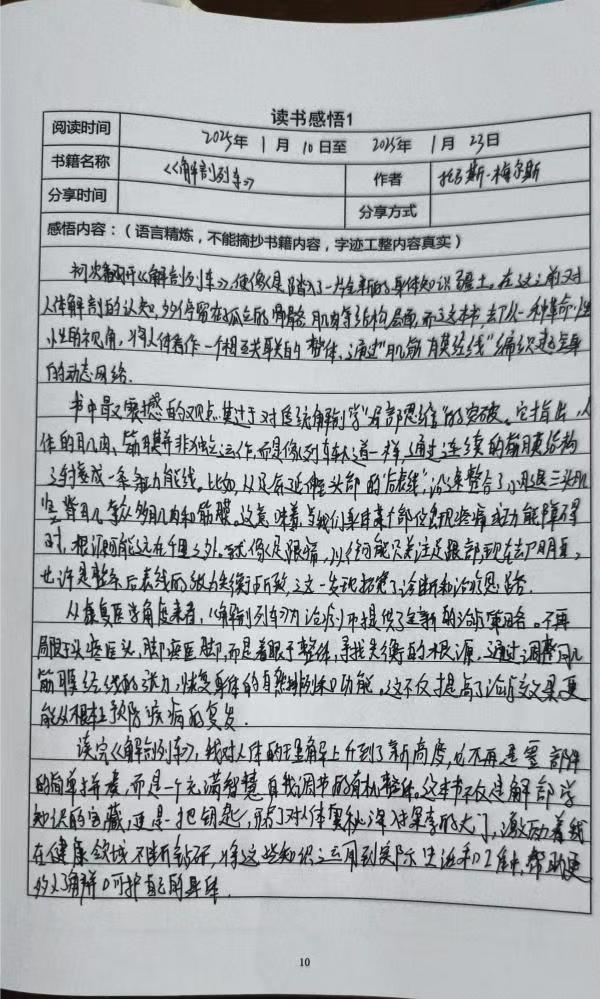 读书感悟1
阅读时间 2025年 1月 10日至 2025年 1月 23日
书籍名称 《解剖列车》 作者 托马斯·梅尔斯
分享时间 分享方式
感悟内容：（语言精炼，不能摘抄书籍内容，字迹工整内容真实）
初次翻开《解剖列车》，便像是踏入了一片全新的身体知识疆土。在这之前对
人体解剖的认知，多停留在孤立的骨骼肌肉等结构层面，而这本书，却以一种革命性
性的视角，将人体看作一个相互关联的整体，通过"肌筋膜经线"编织起全身
的动态网络.
书中最震撼的观点莫过于对传统解剖学"局部思维"的突破。它指出，人
体的肌肉、筋膜并非独立运作，而是像列车轨道一样，通过连续的筋膜结构
连接成一条条力能线。比如，从足底延伸至头部的"后表线"，沿途整合了小腿三头肌
竖脊肌等众多肌肉和筋膜。这意味着，当我们身体某个部位出现疼痛或功能障碍
时，根源可能远在千里之外。就像是跟痛，以往可能只关注足跟部，现在却明白，
也许是整条后表线的张力失衡所致，这一发现拓宽了诊断和治疗思路.
从康复医学角度来看，《解剖列车》为治疗师提供了全新的治疗策略。不再
局限于头痛医头，脚痛医脚，而是着眼于整体，寻找失衡的根源，通过调整肌
筋膜经线的张力，恢复身体的自然排列和功能。这不仅提高了治疗效果，更
能从根本上预防疾病的复发.
读完《解剖列车》，我对人体的理解上升到了新高度，它不再是零部件
的简单拼凑，而是一个充满智慧自我调节的有机整体。这本书不仅是解剖学
知识的宝藏，更是一把钥匙，开启了对人体奥秘深处探索的大门，激励着我
在健康领域不断钻研，将这些知识运用到实际生活和工作中，帮助更
多人了解呵护自己的身体.
10